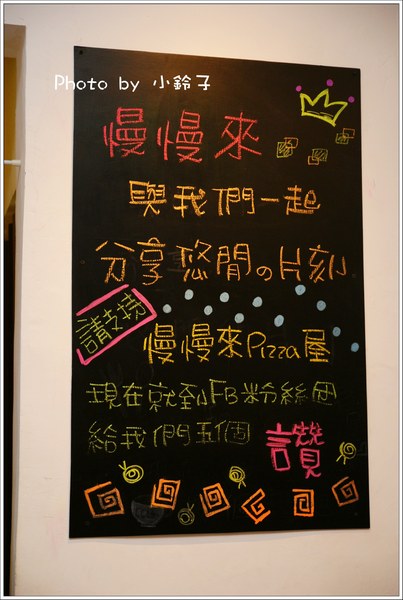 Photo by 小鈴子
慢慢來
與我們一起
分享悠閒の片刻
請支持
慢慢來Pizza屋
現在就到FB粉絲團
給我們五個 讚